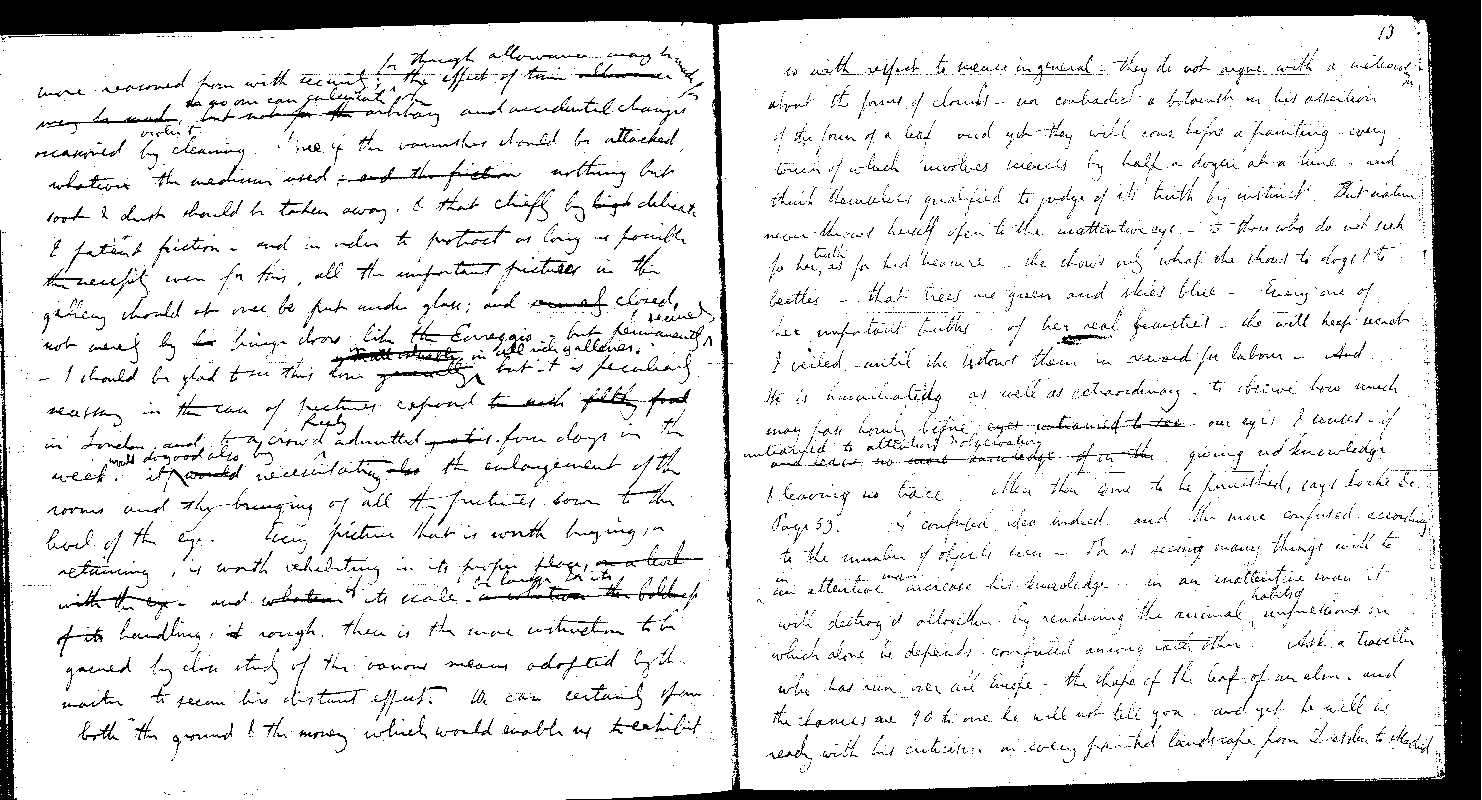 for though allowance may be made for
more reasoned from with security; the effect of time allowance
may be made, as no one can calculate on but not for the arbitrary and accidental changes
occasioned by violent cleaning. if the varnishes should be attacked
whatever the medium used, and the friction nothing but
soot & dust should be taken away. & that chiefly by delicate
& patient friction - and in order to protract as long as possible
the necessity even for this, all the important pictures in the
gallery should at once be put under glass; and closed,
not merely by hinge doors, like the Correggio - but permanently & securely
- I should be glad to see this done generally in all rich galleries. but it is peculiarly
necessary in the case of pictures exposed to such filthy
in London, and to a crowd freely admitted gratis four days in the
week. it would do good also by would necessitating also the enlargement of the
rooms and the bringing of all the pictures down to the
level of the eye. Every picture that is worth buying, or
retaining, is worth exhibiting in its proper place, on a level
with the eye - and whatever its scale
of its handling; if rough, there is the more instruction to be
gained by close study of the various means adopted by the
master to secure his distant effect. We can certainly spare
both the ground & the money which would enable us to exhibit
13
is with respect to science in general - they do not argue with a meteorologist
about the forms of clouds - nor contradict a botanist in his assertion
of the form of a leaf and yet they will come before a painting every
touch of which involves sciences by half a dozen at a time - and
think themselves qualified to judge of its truth by instinct. But nature
never throws herself open to the inattentive eye. - to those who do not seek
for her truth, as for hid treasure - she shows only what she shows to dogs & to
beetles - that trees are green and skies blue - Every one of
her important truths - of her real beauties - she will keep secret
& veiled - until she bestows them in reward for labour - And
it is humiliating as well as extraordinary to observe how much
may pass hourly before eyes untrained to see our eyes & senses - if
untrained to attentive & observation
and leave no more knowledge of in the giving no knowledge
& leaving no trace. When then come to be furnished, says Locke
Page 59. A confused idea indeed. and the more confused according
to the number of objects seen - For as seeing many things will to
in an attentive man increase his knowledge. in an inattentive man it
will destroy it altogether by rendering the habits of impressions on
which alone he depends confused among each other. Ask a traveller
who has run over all Europe - the shape of the leaf of an elm. and
the chances are 90 to one he will not tell you. and yet he will be
ready with his criticism on every painted landscape from Dresden to Madrid